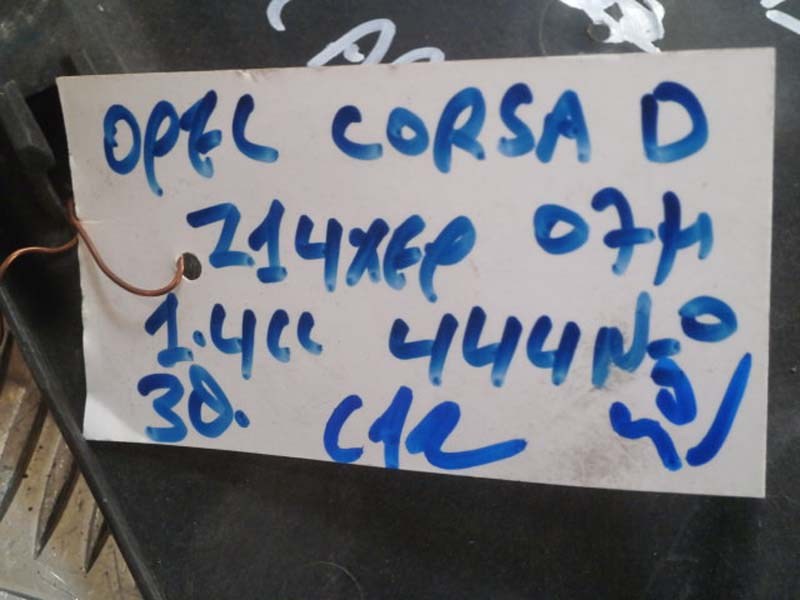 OPEL CORSA D
Z14XEP 07H
1.4CC 444 N.O
30.